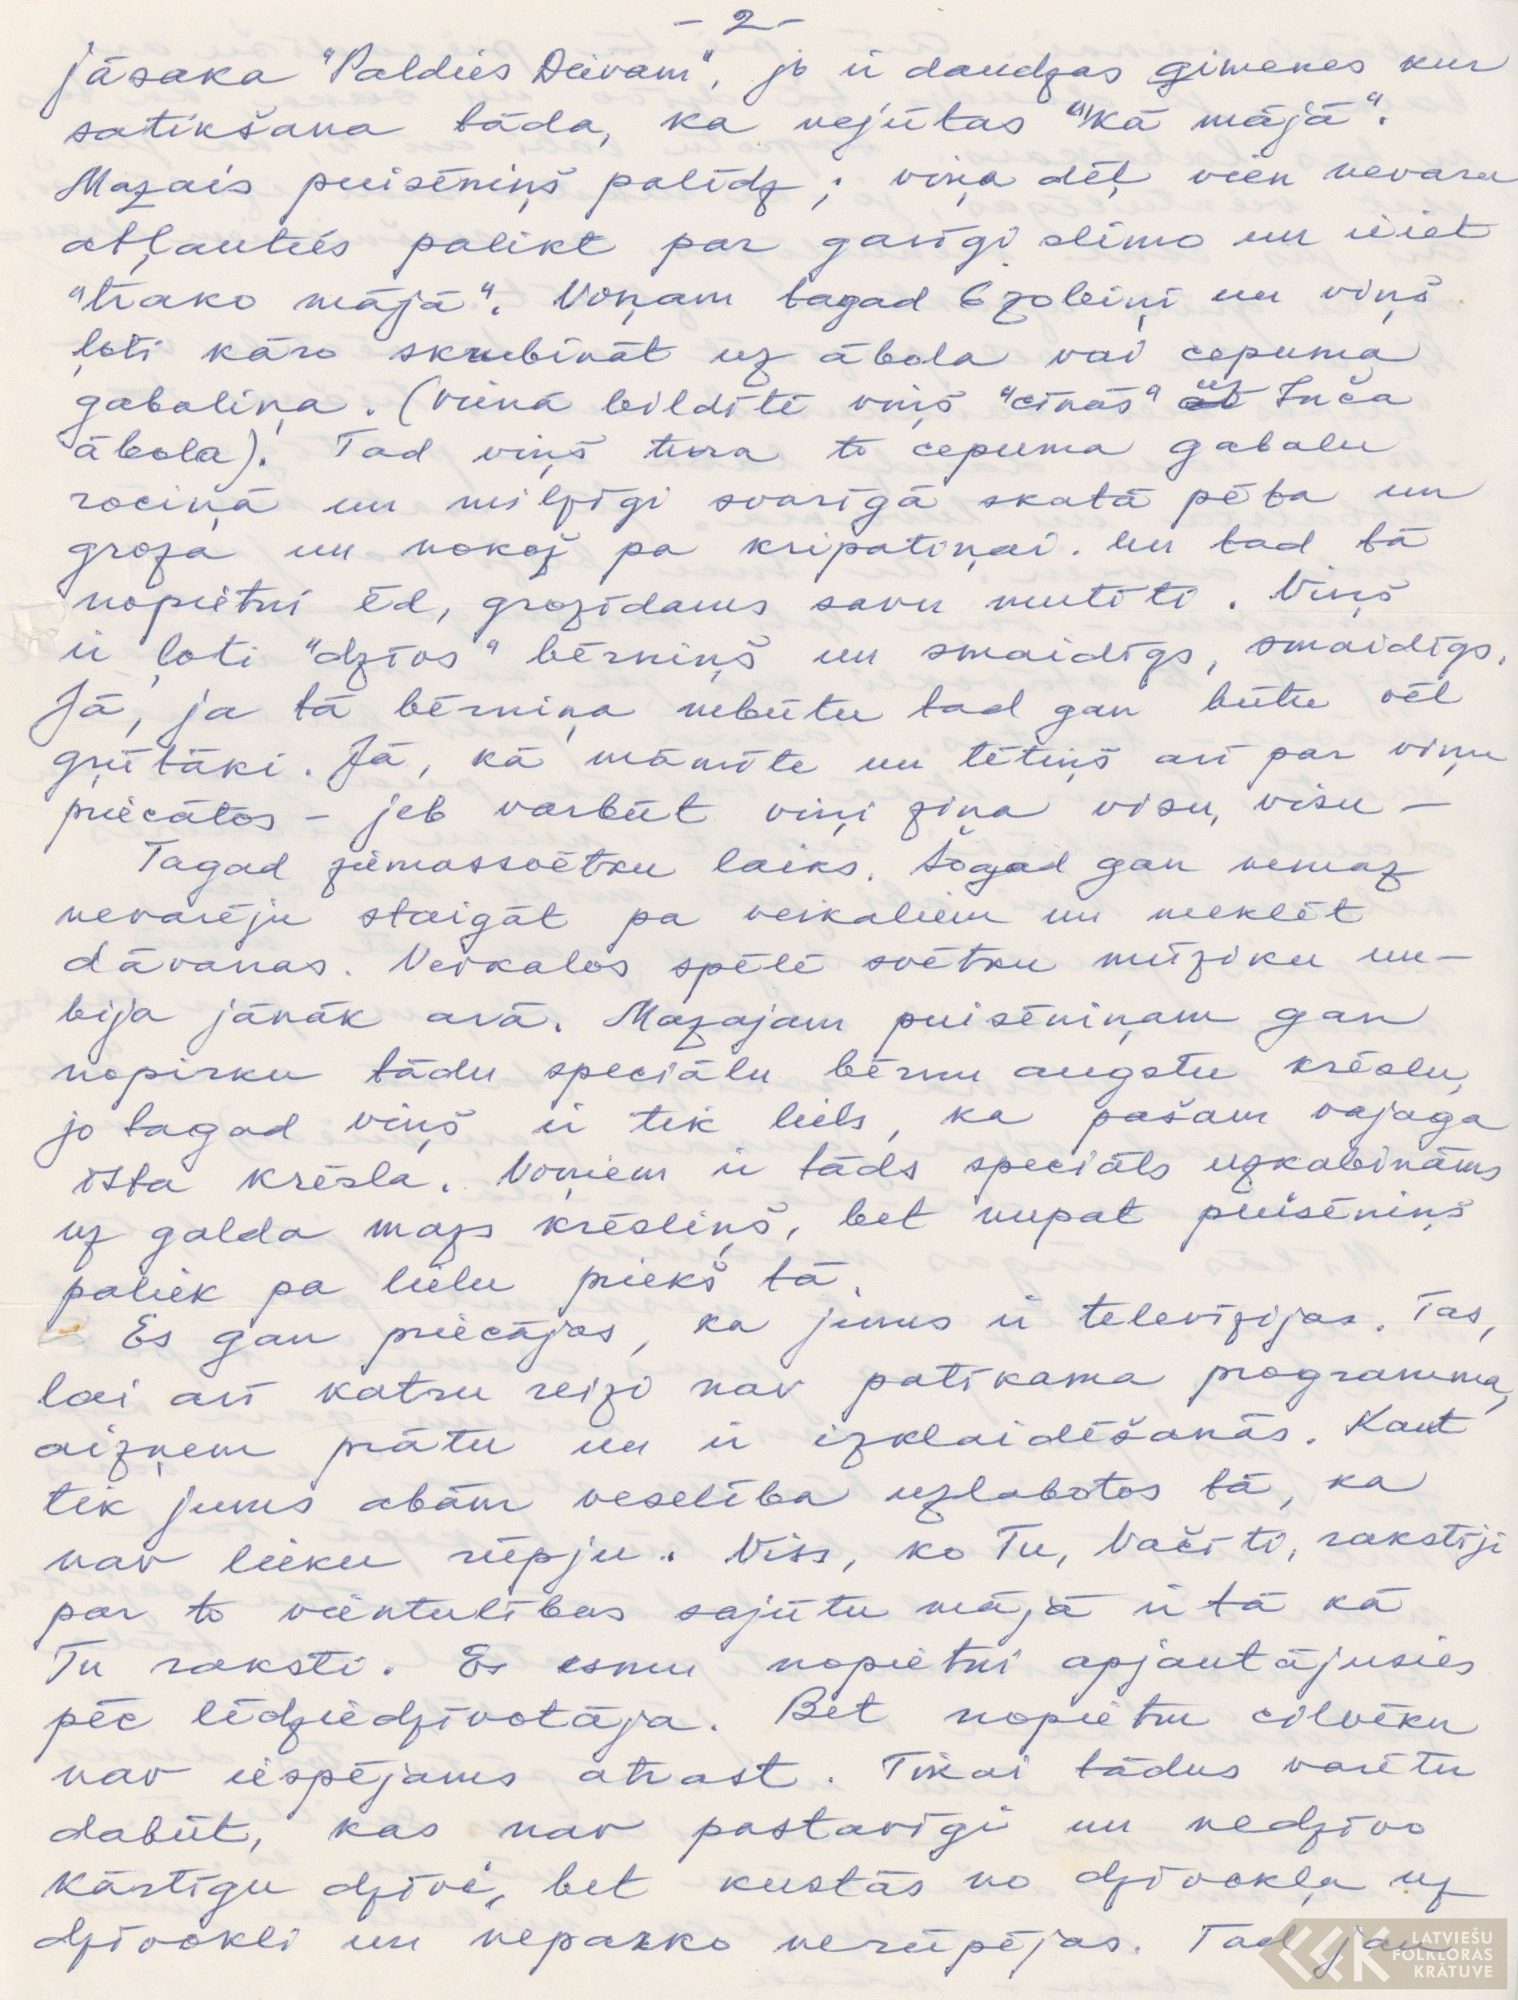 - 2 -
jāsaka "Paldies Dievam", jo ir daudzas ģimenes kur
satikšana tāda, ka nejūtas "kā mājā".
Mazais puisēniņš palīdz; viņa dēļ vien nevaru
atļauties palikt par garīgi slimo un iiet
"trako mājā". Viņam tagad 6 zobiņi un viņš
ļoti kāro skrubināt uz ābola vai cepuma
gabaliņa. (Vienā bildītē viņš "cīnās" uz Inča
ābola). Tad viņš tura to cepuma gabalu
rociņā un milzīgi svarīgā skatā pēta un
groza un nokož pa kripatiņai. Un tad tā
nopietni ēd, grozīdams savu mutīti. Viņš
ir ļoti "dzīvs" bērniņš un smaidīgs, smaidīgs.
Jā, ja tā bērniņa nebūtu tad gan būtu vēl
grūtāki. Jā, kā māmīte un tētiņš arī par viņu
priecātos - jeb varbūt viņi zina visu, visu -
Tagad ziemassvētku laiks. Šogad gan nemaz
nevarēju staigāt pa veikaliem un meklēt
dāvanas. Veikalos spēlē svētku mūziku un -
bija jānāk ārā. Mazajam puisēniņam gan
nopirku tādu speciālu bērnu augstu krēslu,
jo tagad viņš ir tik liels, ka pašam vajaga
īsta krēsla. Viņiem ir tāds speciāls uzkabināms
uz galda mazs krēsliņš, bet nupat puisēniņš
paliek pa lielu priekš tā.
Es gan priecājos, ka jums ir televīzijas. Tas,
lai arī katru reizi nav patīkama programma,
aizņem prātu un ir izklaidēšanās. Kaut
tik jums abām veselība uzlabotos tā, ka
nav lieku rūpju. Viss, ko Tu, Vačīti, rakstīji
par to vientulības sajūtu mājā ir tā kā
Tu raksti. Es esmu nopietni apjautājusies
pēc līdziedzīvotāja. Bet nopietnu cilvēku
nav iespējams atrast. Tikai tādus varētu
dabūt, kas nav pastāvīgi un nedzīvo
kārtīgu dzīvi, bet kustās no dzīvokļa uz
dzīvokli un neparko nerūpējas. Tad jau
LATVIEŠU
FOLKLORAS
KRĀTUVE